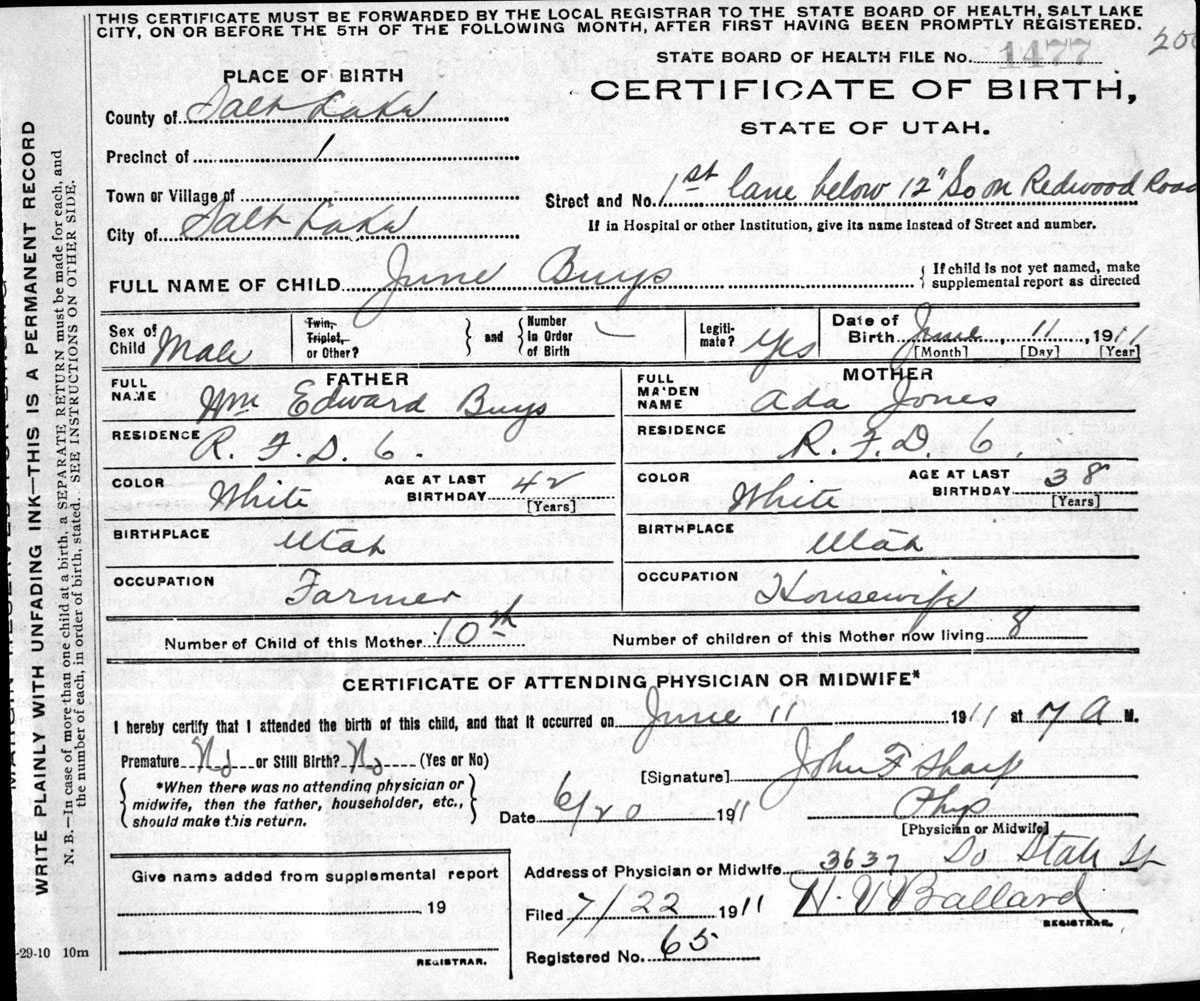 THIS CERTIFICATE MUST BE FORWARDED BY THE LOCAL REGISTRAR TO THE STATE BOARD OF HEALTH, SALT LAKE
CITY, ON OR BEFORE THE 5TH OF THE FOLLOWING MONTH, AFTER FIRST HAVING BEEN PROMPTLY REGISTERED.
STATE BOARD OF HEALTH FILE No. 1477
200
CERTIFICATE OF BIRTH,
STATE OF UTAH.
PLACE OF BIRTH
County of Salt Lake
Precinct of 1
Town or Village of
City of Salt Lake
Street and No. 1st lane below 12" So on Redwood Road
If in Hospital or other Institution, give its name instead of Street and number.
FULL NAME OF CHILD June Buys
{ If child is not yet named, make
supplemental report as directed
Sex of
Child Male
Twin,
Triplet,
or Other?
} and {
Number
in Order
of Birth —
Legiti-
mate? Yes
Date of
Birth June, 11, 1911
[Month] [Day] [Year]
FATHER
FULL
NAME Wm Edward Buys
RESIDENCE R. F. D. 6.
COLOR White
AGE AT LAST
BIRTHDAY 42
[Years]
BIRTHPLACE Utah
OCCUPATION Farmer
MOTHER
FULL
MAIDEN
NAME Ada Jones
RESIDENCE R. F. D. 6.
COLOR White
AGE AT LAST
BIRTHDAY 38
[Years]
BIRTHPLACE Utah
OCCUPATION Housewife
Number of Child of this Mother 10th
Number of children of this Mother now living 8
CERTIFICATE OF ATTENDING PHYSICIAN OR MIDWIFE*
I hereby certify that I attended the birth of this child, and that it occurred on June 11 1911 at 7 A M.
Premature No or Still Birth? No (Yes or No)
{ *When there was no attending physician or
midwife, then the father, householder, etc.,
should make this return. }
[Signature] John F Sharp
Date 6/20 1911
Phys
[Physician or Midwife]
Address of Physician or Midwife 3637 So State St
Filed 7/22 1911
H. V Ballard
REGISTRAR.
Registered No. 65
Give name added from supplemental report
, 19
REGISTRAR.
-29-10 10m
WRITE PLAINLY WITH UNFADING INK—THIS IS A PERMANENT RECORD
N. B.—In case of more than one child at a birth, a SEPARATE RETURN must be made for each, and
the number of each, in order of birth, stated. SEE INSTRUCTIONS ON OTHER SIDE.